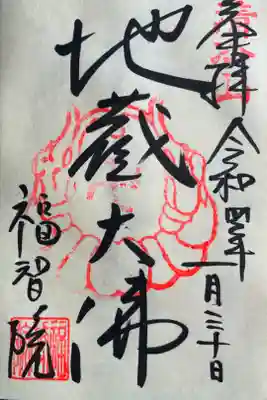 奉拝
令和四年
一月三十日
地蔵大佛
福智院